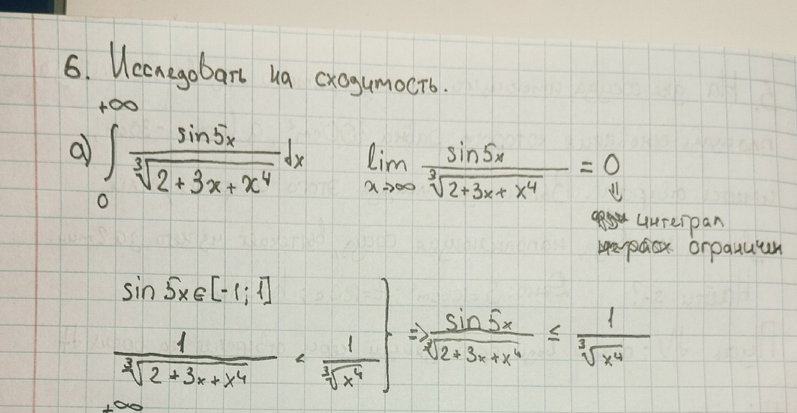 6. Исследовать на сходимость.
а) ∫₀^{+∞} sin5x / ∛(2+3x+x⁴) dx    lim_{x→∞} sin5x / ∛(2+3x+x⁴) = 0
⇓
интеграл
ограничен
sin 5x ∈ [-1; 1]
1 / ∛(2+3x+x⁴) < 1 / ∛(x⁴) } ⇒ sin 5x / ∛(2+3x+x⁴) ≤ 1 / ∛(x⁴)
+∞